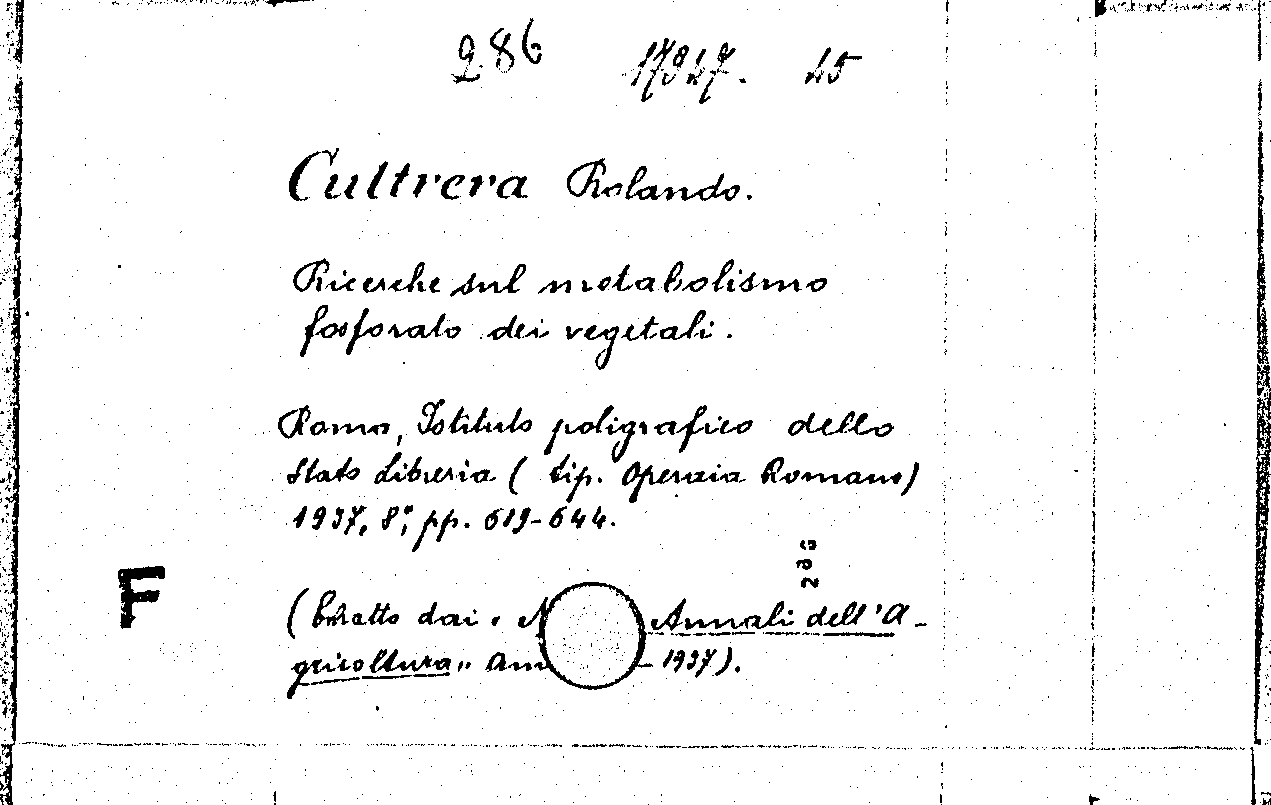 286 17947. 45
Cultrera Rolando.
Ricerche sul metabolismo
fosforato dei vegetali.
Roma, Istituto poligrafico dello
Stato Libreria (tip. Operaia Romana)
1937, 8°, pp. 619-644.
286
F
(Estratto dai « Annali dell'A-
gricoltura" - 1937).